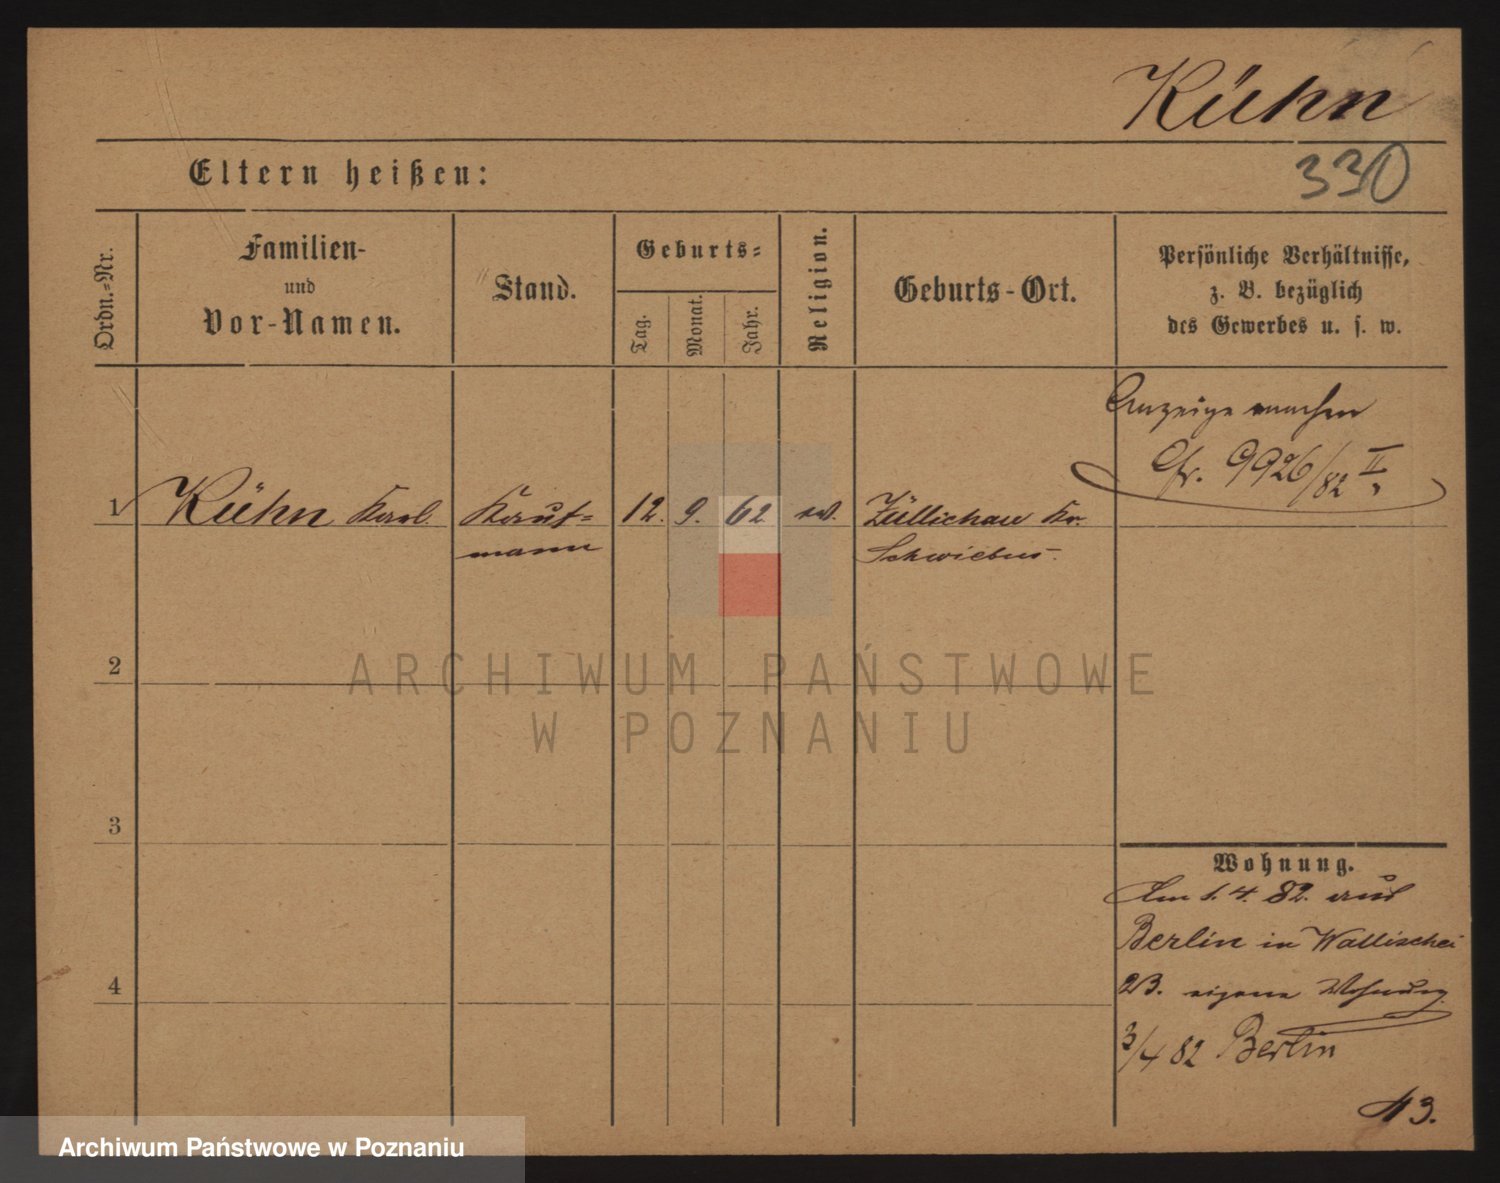 Kühn
330
Eltern heißen:
Ordn.-Nr.
Familien-
und
Vor-Namen.
Stand.
Geburts-
Tag.
Monat.
Jahr.
Religion.
Geburts-Ort.
Persönliche Verhältnisse,
z. B. bezüglich
des Gewerbes u. s. w.
Anzeige machen
Cfr. 9926/82 II
1 Kühn Karl. Kauf- 12. 9. 62 ev. Züllichau Kr.
mann Schwiebus.
2
ARCHIWUM PAŃSTWOWE
W POZNANIU
3
Wohnung.
Am 1. 4. 82. aus
Berlin in Wallischei
23. eigene Wohnung.
4
3/4 82 Berlin
3.
Archiwum Państwowe w Poznaniu